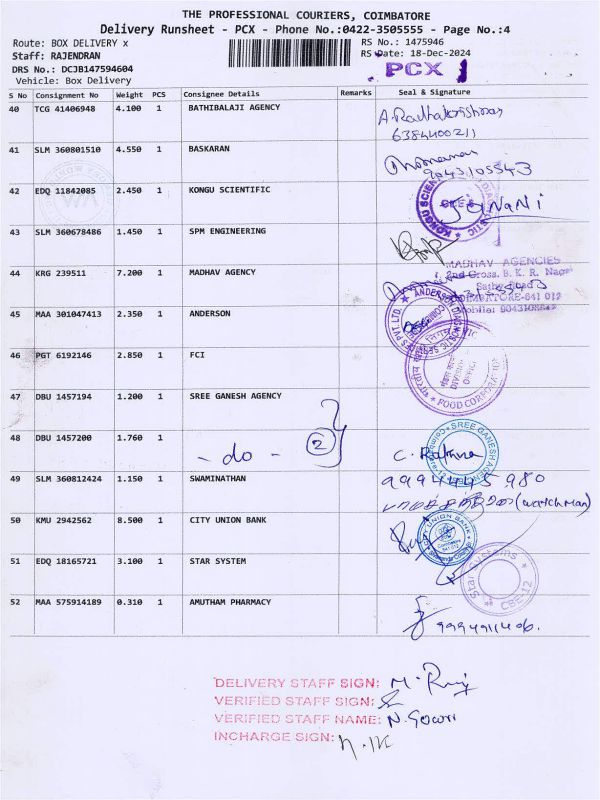 THE PROFESSIONAL COURIERS, COIMBATORE
Delivery Runsheet - PCX - Phone No.:0422-3505555 - Page No.:4
Route: BOX DELIVERY x
RS No.: 1475946
Staff: RAJENDRAN
RS Date: 18-Dec-2024
DRS No.: DCJB147594604
PCX 1
Vehicle: Box Delivery
S No Consignment No Weight PCS Consignee Details Remarks Seal & Signature
40 TCG 41406948 4.100 1 BATHIBALAJI AGENCY
6384400211
41 SLM 360801510 4.550 1 BASKARAN
9043105543
42 EDQ 11842085 2.450 1 KONGU SCIENTIFIC
JANANI
43 SLM 360678486 1.450 1 SPM ENGINEERING
44 KRG 239511 7.200 1 MADHAV AGENCY
MADHAV AGENCIES
2nd Cross, B. K. R. Nagar
Sathy Road
COIMBATORE-641 012
45 MAA 301047413 2.350 1 ANDERSON
46 PGT 6192146 2.850 1 FCI
FOOD CORPORATION
47 DBU 1457194 1.200 1 SREE GANESH AGENCY
48 DBU 1457200 1.760 1
- do - 2
C. Rathna
SREE GANESH AGENCY
49 SLM 360812424 1.150 1 SWAMINATHAN
9994445980
(watchman)
50 KMU 2942562 8.500 1 CITY UNION BANK
CITY UNION BANK
51 EDQ 18165721 3.100 1 STAR SYSTEM
Star Systems
CBE-12
52 MAA 575914189 0.310 1 AMUTHAM PHARMACY
9994911406.
DELIVERY STAFF SIGN:
VERIFIED STAFF SIGN:
VERIFIED STAFF NAME: N. Gowri
INCHARGE SIGN: